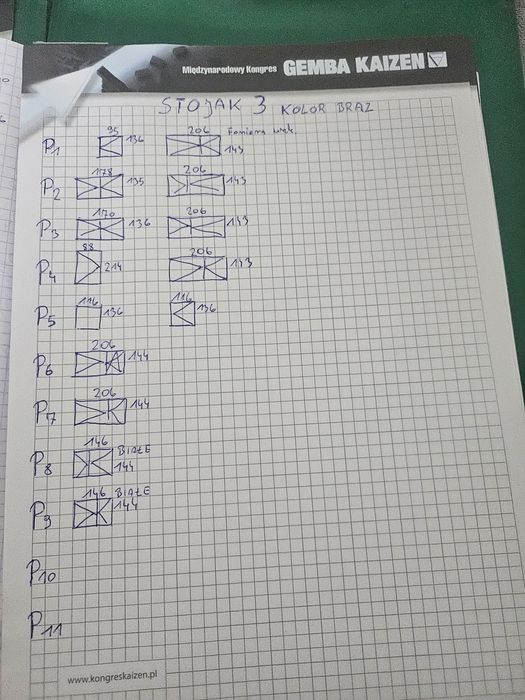 Międzynarodowy Kongres GEMBA KAIZEN
STOJAK 3 KOLOR BRAZ
P1 95 136 206 143
P2 178 135 206 143
P3 170 136 206 143
P4 88 214 206 143
P5 116 136 116 136
P6 206 144
P7 206 144
P8 146 BIAŁE 144
P9 146 BIAŁE 144
P10
P11
www.kongreskaizen.pl